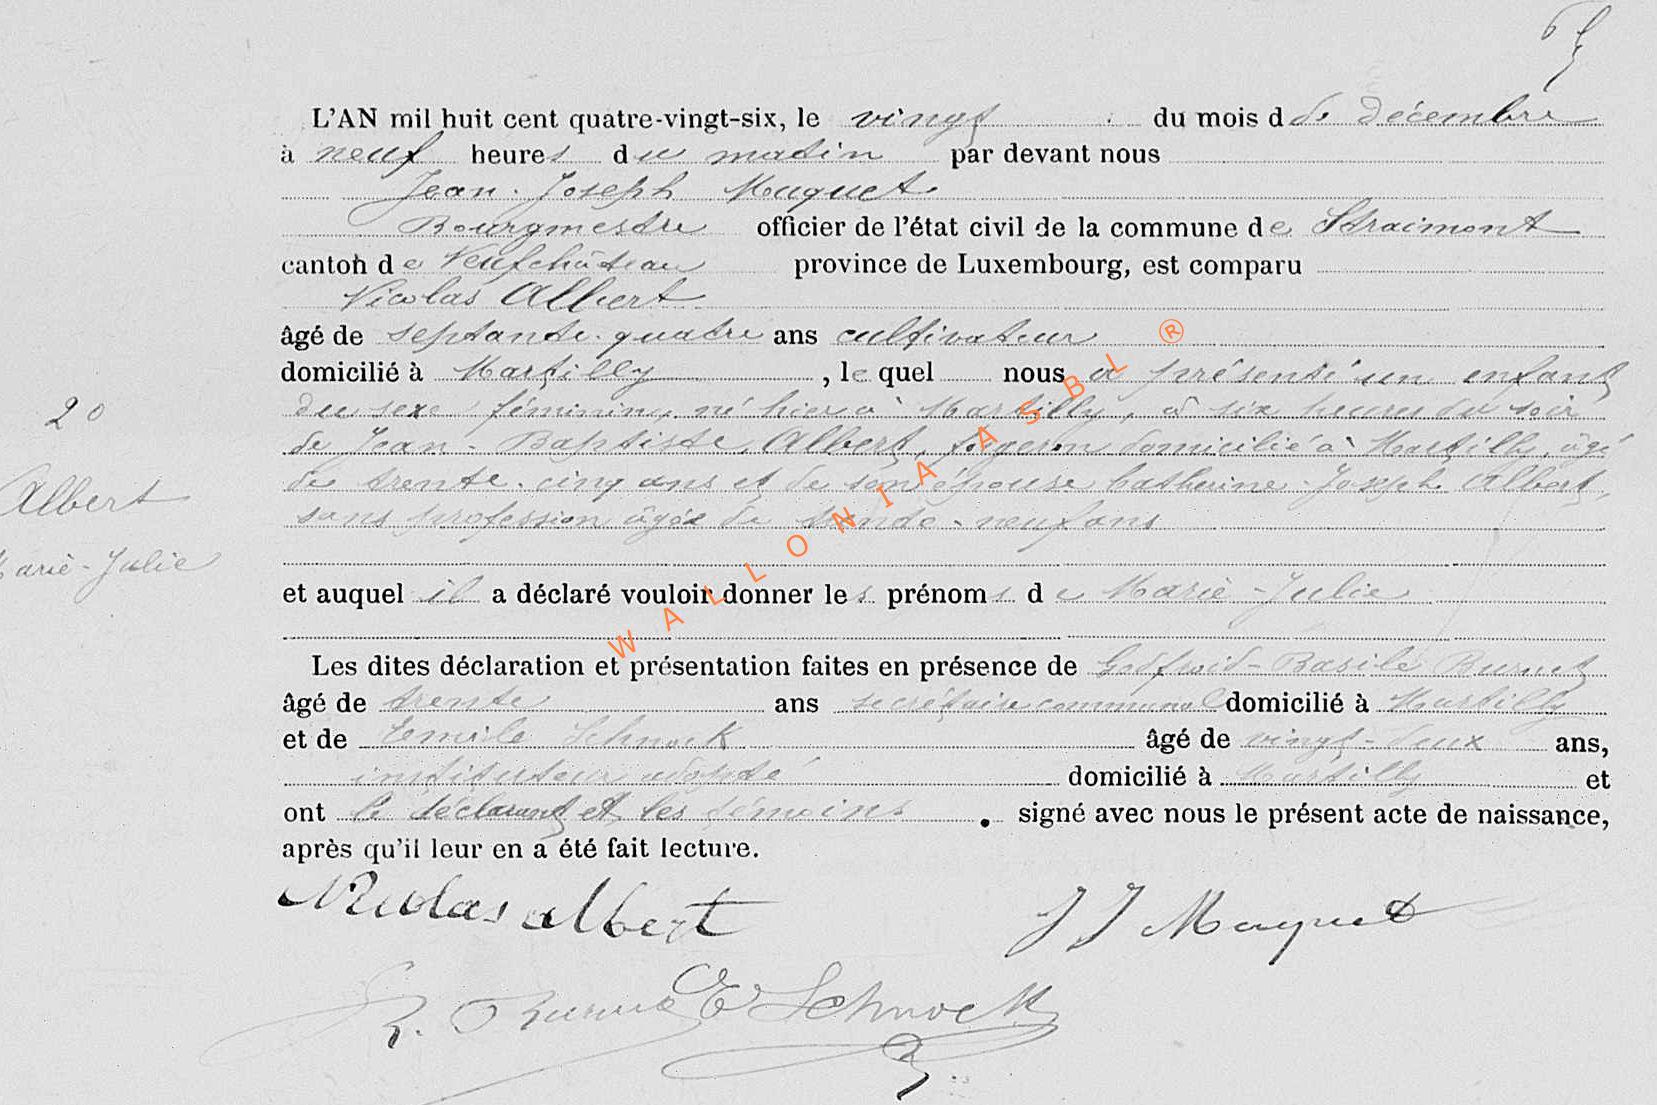 L'AN mil huit cent quatre-vingt-six, le vingt du mois d de décembre
à neuf heures du matin par devant nous
Jean-Joseph Maquet
Bourgmestre officier de l'état civil de la commune de Straimont
canton de Neufchâteau province de Luxembourg, est comparu
Nicolas Albert
âgé de septante-quatre ans cultivateur
domicilié à Martilly, le quel nous a présenté un enfant
du sexe féminin, né hier à Martilly, à six heures du soir
20
de Jean-Baptiste Albert, forgeron domicilié à Martilly, âgé
de trente-cinq ans et de son épouse Catherine-Joseph Albert,
Albert
sans profession âgée de neuf ans
Marie-Julie
et auquel il a déclaré vouloir donner les prénoms de Marie-Julie
Les dites déclaration et présentation faites en présence de Godfroid-Basile Burnet
âgé de trente ans secrétaire communal domicilié à Martilly
et de Emile Schnock âgé de vingt-deux ans,
instituteur adopté domicilié à Martilly et
ont le déclarant et les témoins. signé avec nous le présent acte de naissance,
après qu'il leur en a été fait lecture.
Nicolas Albert
J J Maquet
Burnet E Schnock
WALLONIA ASBL ®